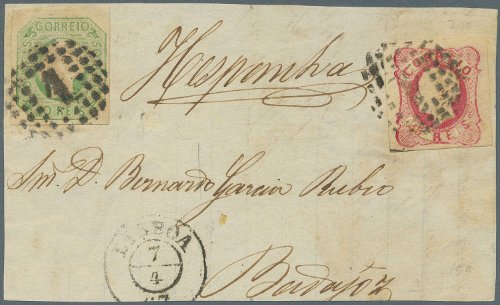 CORREIO
1
Hespanha
CORREIO
REI
Snr. D. Bernardo Garcia Rubio
LISBOA
7
4
Badajoz